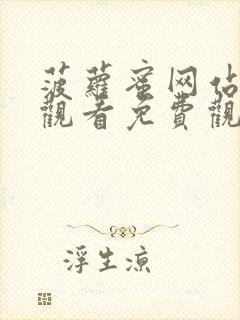 菠蘿蜜网佔
觀看免費觀
浮生涼